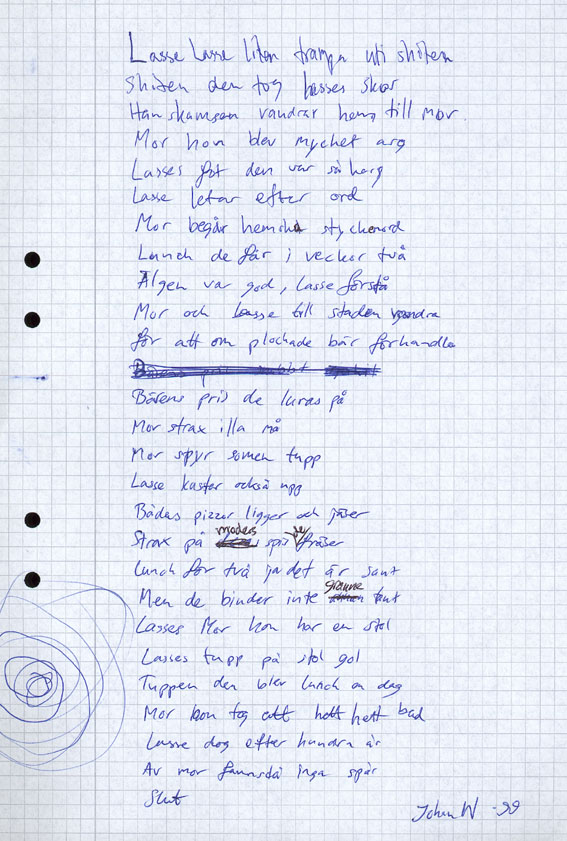 Lasse Lasse liten trampa uti skiten
Skiten den tog Lasses skor
Han skamsen vandrar hem till mor.
Mor hon blev mycket arg
Lasses fot den var så harg
Lasse letar efter ord
Mor begår hemska styckemord
Lunch de får i veckor två
Älgen var god, Lasse förstå
Mor och Lasse till staden vandra
för att om plockade bär förhandla
Bärens pris de luras på
Mor strax illa må
Mor spyr somen tupp
Lasse kastar också upp
Bådas pizzor ligger och jäser
Strax på moders spis de fräser
Lunch för två ja det är sant
Men de binder inte granne tant
Lasses Mor hon har en stol
Lasses tupp på stol gol
Tuppen den blev lunch en dag
Mor hon tog ett hett bad
Lasse dog efter hundra år
Av mor fanns då inga spår
Slut
Johan W -99